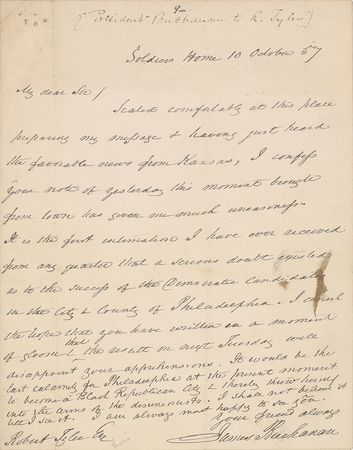 9
[President Buchanan to R. Tyler]
Soldiers Home 10 October 57
My dear Sir/
Seated comfortably at this place
preparing my message & having just heard
the favorable news from Kansas, I confess
your note of yesterday this moment brought
from town has given me much uneasiness.
It is the first intimation I have ever received
from any quarter that a serious doubt existed
as to the success of the Democratic candidates
in the City & County of Philadelphia. I cherish
the hope that you have written in a moment
of gloom & that the result on next Tuesday will
disappoint your apprehensions. It would be the
last calamity for Philadelphia at the present moment
to become a Black Republican City & thereby throw herself
into the arms of the disunionists. I shall not believe it
till I see it. I am always most happy to see you
Your friend always
James Buchanan
Robert Tyler Esq